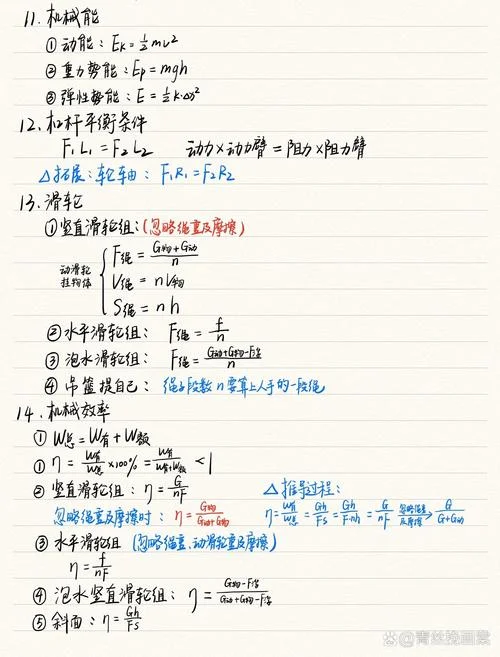 11. 机械能
① 动能：Eₖ=½mv²
② 重力势能：Ep=mgh
③ 弹性势能：E=½k·Δx²
12. 杠杆平衡条件
F₁L₁=F₂L₂ 动力×动力臂=阻力×阻力臂
△拓展：轮轴：F₁R₁=F₂R₂
13. 滑轮
①竖直滑轮组：(忽略绳重及摩擦)
动滑轮挂物体 F绳=(G物+G动)/n
V绳=nV物
S绳=nh
②水平滑轮组：F绳=f/n
③泡水滑轮组：F绳=(G动+G物-F浮)/n
④吊篮提自己：绳子段数n要算上人手的一段绳
14. 机械效率
① W总=W有+W额
① η=W有/W总×100%=W有/(W有+W额)<1
② 竖直滑轮组：η=G/nF △推导过程：
忽略绳重及摩擦时：η=G物/(G动+G物) η=W有/W总=Gh/FS=Gh/F·nh=G/nF 忽略绳重及摩擦→G/(G+G动)
③ 水平滑轮组 (忽略绳重、动滑轮重及摩擦)
η=f/nF
④ 泡水竖直滑轮组：η=(G物-F浮)/(G动+G物-F浮)
⑤ 斜面：η=Gh/FS
百家号@青丝挽画裳